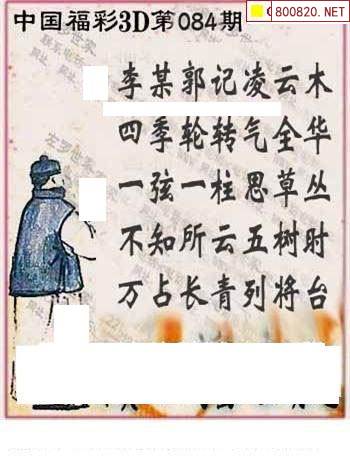 中国福彩3D第084期
800820.NET
李某郭记凌云木
四季轮转气全华
一弦一柱思草丛
不知所云五树时
万占长青列将台